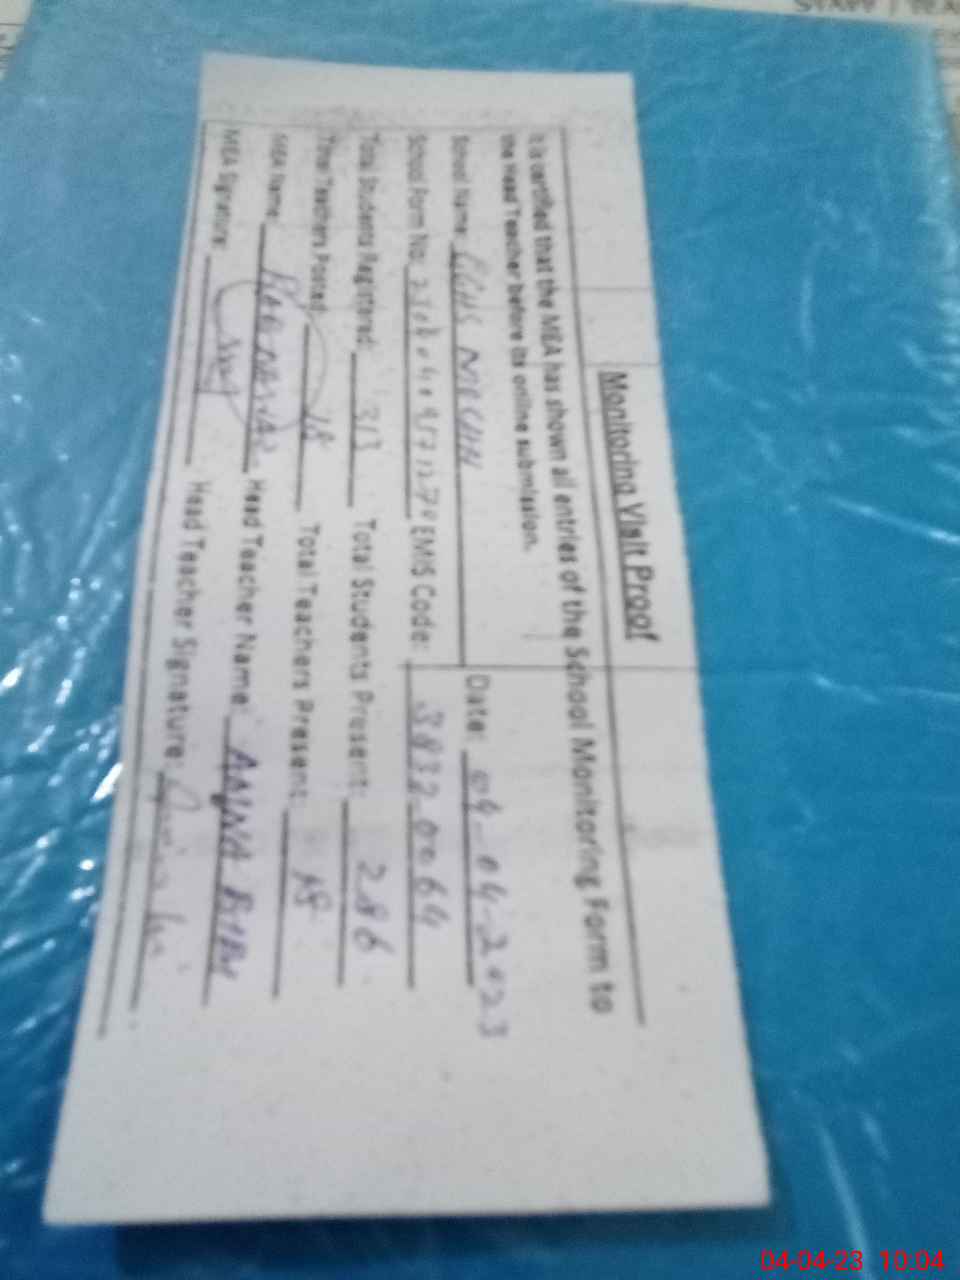 Monitoring Visit Proof
It is certified that the MEA has shown all entries of the School Monitoring Form to
the Head Teacher before its online submission.
School Name: Date: 04-04-2023
School Form No: EMIS Code: 38320064
Total Students Registered: 313 Total Students Present: 286
Total Teachers Posted: 18 Total Teachers Present: 18
MEA Name: Head Teacher Name: AMNA BIBI
MEA Signature: Head Teacher Signature:
04-04-23 10:04